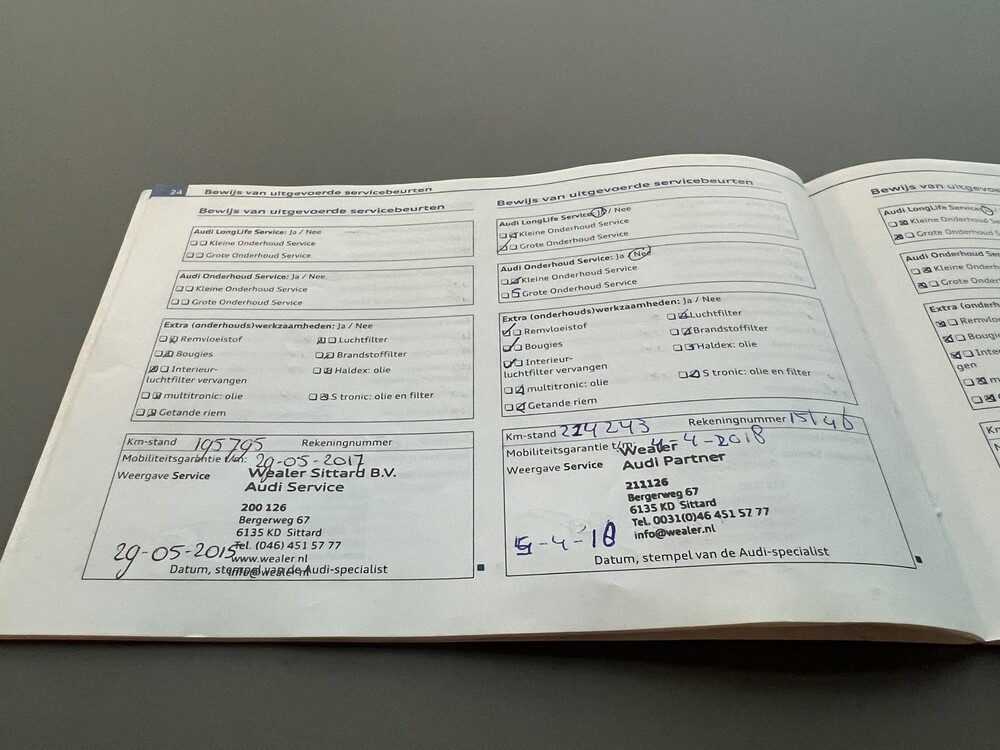 24
Bewijs van uitgevoerde servicebeurten
Bewijs van uitgevoerde servicebeurten
Audi LongLife Service: Ja / Nee
Kleine Onderhoud Service
Grote Onderhoud Service
Audi Onderhoud Service: Ja / Nee
Kleine Onderhoud Service
Grote Onderhoud Service
Extra (onderhouds)werkzaamheden: Ja / Nee
Remvloeistof
Luchtfilter
Bougies
Brandstoffilter
Interieur-
luchtfilter vervangen
Haldex: olie
multitronic: olie
S tronic: olie en filter
Getande riem
Km-stand 195795 Rekeningnummer
Mobiliteitsgarantie t/m: 29-05-2017
Weergave Service
Wealer Sittard B.V.
Audi Service
200 126
Bergerweg 67
6135 KD Sittard
Tel. (046) 451 57 77
29-05-2015
www.wealer.nl
info@wealer.nl
Datum, stempel van de Audi-specialist
Bewijs van uitgevoerde servicebeurten
Audi LongLife Service: Ja / Nee
Kleine Onderhoud Service
Grote Onderhoud Service
Audi Onderhoud Service: Ja / Nee
Kleine Onderhoud Service
Grote Onderhoud Service
Extra (onderhouds)werkzaamheden: Ja / Nee
Remvloeistof
Luchtfilter
Bougies
Brandstoffilter
Interieur-
luchtfilter vervangen
Haldex: olie
multitronic: olie
S tronic: olie en filter
Getande riem
Km-stand 224243 Rekeningnummer
Mobiliteitsgarantie t/m: 4-4-2018
Weergave Service
Wealer
Audi Partner
211126
Bergerweg 67
6135 KD Sittard
Tel. 0031(0)46 451 57 77
info@wealer.nl
Datum, stempel van de Audi-specialist
Bewijs van
Audi LongLife Service
Kleine Onderhoud
Grote Onderhoud
Audi Onderhoud
Kleine
Grote
Extra
gen